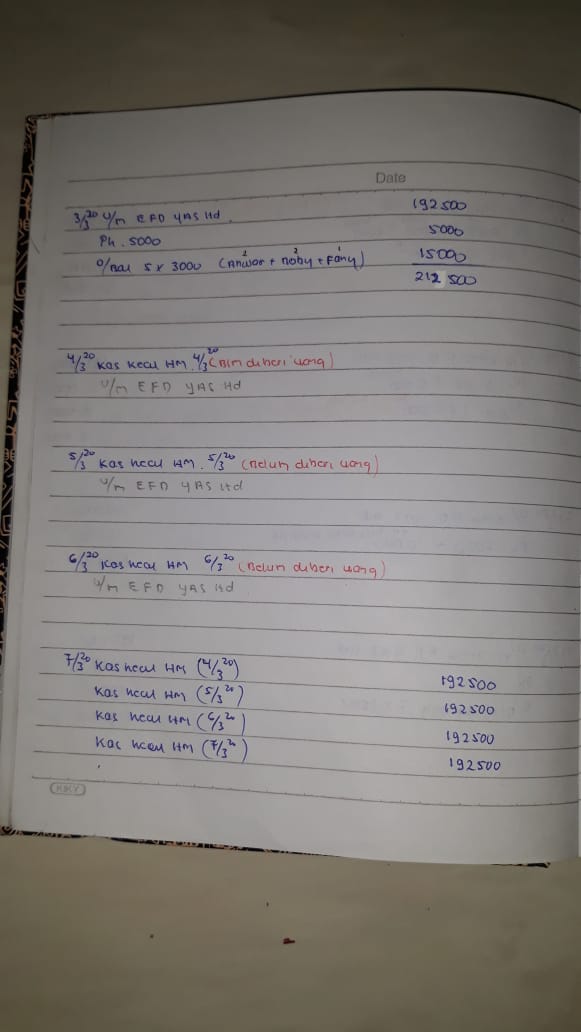 Date
3/3 20 U/m EFD YAS Hd. 192500
Ph. 5000 5000
O/Bal 5 x 3000 (Anwar 2 + Noby 2 + Fany 1) 15000
212 500
4/3 20 Kas Kecil HM. 4/3 20 (Blm diberi uang)
U/m EFD YAS Hd
5/3 20 Kas Kecil HM. 5/3 20 (Belum diberi uang)
U/m EFD YAS Hd
6/3 20 Kas Kecil HM 6/3 20 (Belum diberi uang)
U/m EFD YAS Hd
7/3 20 Kas Kecil HM (4/3 20) 192500
Kas Kecil HM (5/3 20) 192500
Kas Kecil HM (6/3 20) 192500
Kas Kecil HM (7/3 20) 192500
KIKY